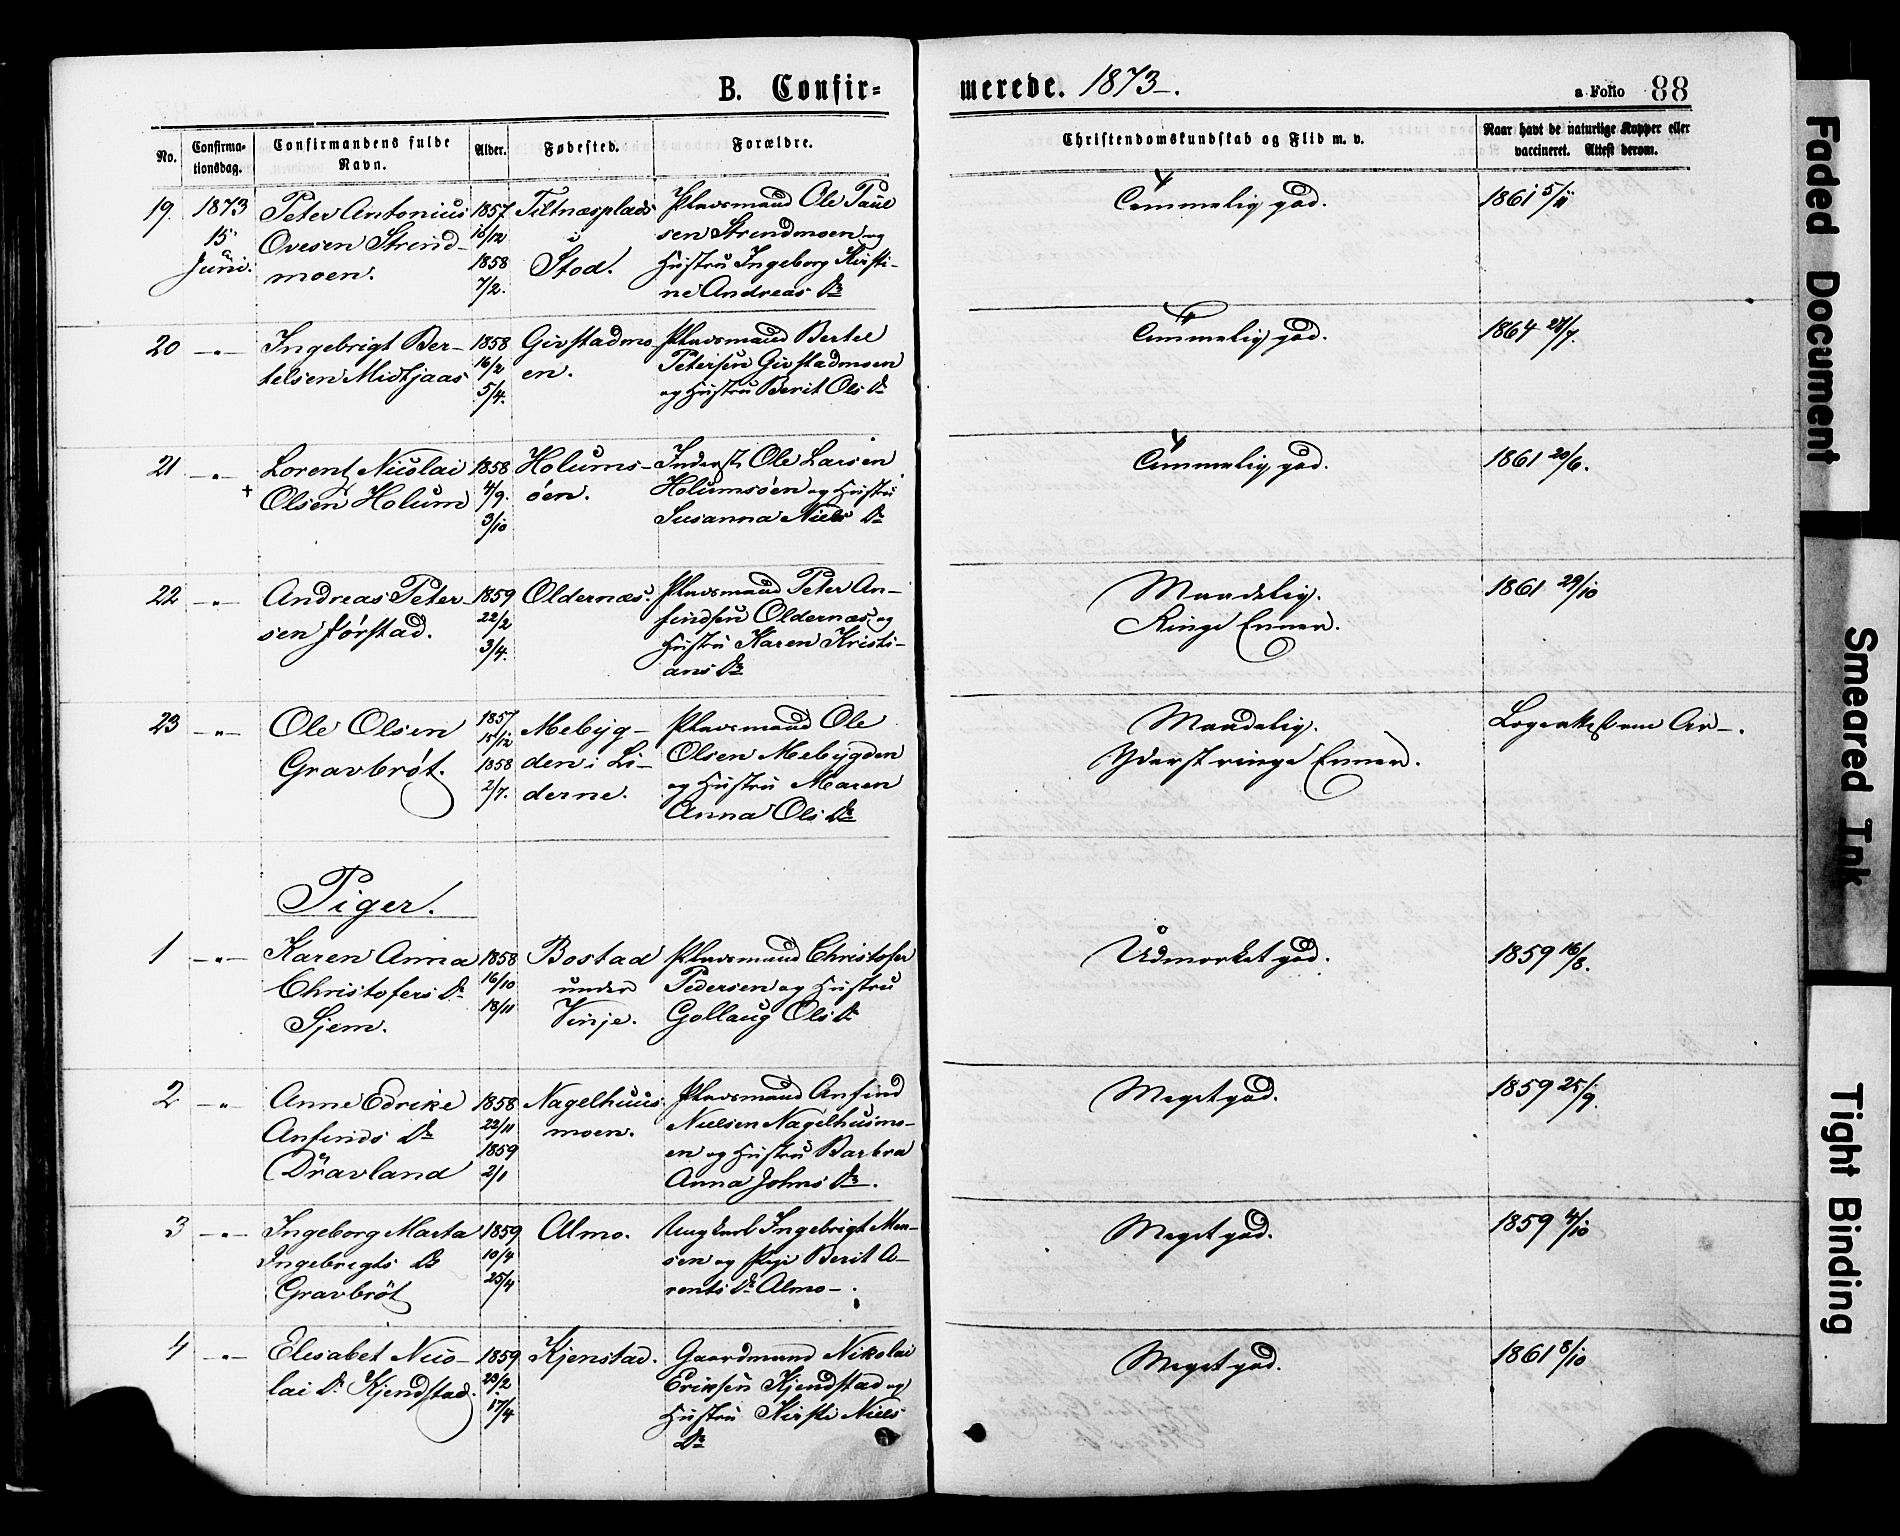 B. Confir=
merede. 1873.
a Folio 88
No.
Confirma-
tionsdag.
Confirmandens fulde
Navn.
Alder.
Fødested.
Forældre.
Christendomskundskab og Flid m. v.
Naar havt de naturlige Kopper eller
vaccineret. Attest derom.
19.
1873
15
Juni.
Peter Antonius
Ovesen Strind-
moen.
1857
16/12
1858
7/2.
Tiltnæsplads
i
Stod.
Pladsmand Ole Paul
sen Strindmoen og
Hustru Ingeborg Kirsti-
ne Andreas Dr
Temmelig god.
1861 5/11
20 -"-
Ingebrigt Ber-
telsen Midtjaas
1858
16/2
5/4.
Givstadmo
en.
Pladsmand Bertel
Petersen Givstadmoen
og Hustru Berit Ols Dr
Temmelig god.
1864 28/7.
21 -"-
+
Lorentz Nicolai
Olsen Holum
1858
4/9.
3/10
Holums-
øen.
Inderst Ole Larsen
Holumsøen og Hustru
Susanna Niels Dr
Temmelig god.
1861 20/6.
22 -"-
Andreas Peter-
sen Jørstad.
1859
22/2
3/4.
Oldernæs.
Pladsmand Peter An-
findsen Oldernæs og
Hustru Karen Kristi-
ans Dr
Maadelig.
Ringe Evner.
1861 29/10
23 -"-
Ole Olsen
Gravbrøt.
1857
15/12
1858
2/7.
Mebyg-
den i Li-
derne.
Pladsmand Ole
Olsen Mebygden
og Hustru Maren
Anna Ols Dr
Maadelig.
Yderst ringe Evner.
Piger.
1 -"-
Karen Anna
Christofers Dr
Sjem.
1858
16/10
18/11
Bostad
under
Vinje.
Pladsmand Christofer
Pedersen og Hustru
Gollaug Ols Dr
Udmærket god.
1859 16/8.
2 -"-
Anne Edrike
Anfinds Dr
Dravland
1858
22/11
1859
2/1
Nagelhuus
moen.
Pladsmand Anfind
Nielsen Nagelhusmo-
en og Hustru Barbra
Anna Johns Dr.
Meget god.
1859 25/9.
3 -"-
Ingeborg Marta
Ingebrigts Dr
Gravbrøt
1859
10/4
25/4
Almo.
Ungkarl Ingebrigt Men-
sen og Pige Berit A-
rents Dr Almo-.
Meget god.
1859 4/10
4 -"-
Elisabet Nico-
lai Dr Kjendstad.
1859
23/2
17/4
Kjenstad.
Gaardmand Nikolai
Eriksen Kjendstad og
Hustru Kirsti Niels
Dr
Meget god.
1861 8/10
Faded Document
Smeared Ink
Tight Binding